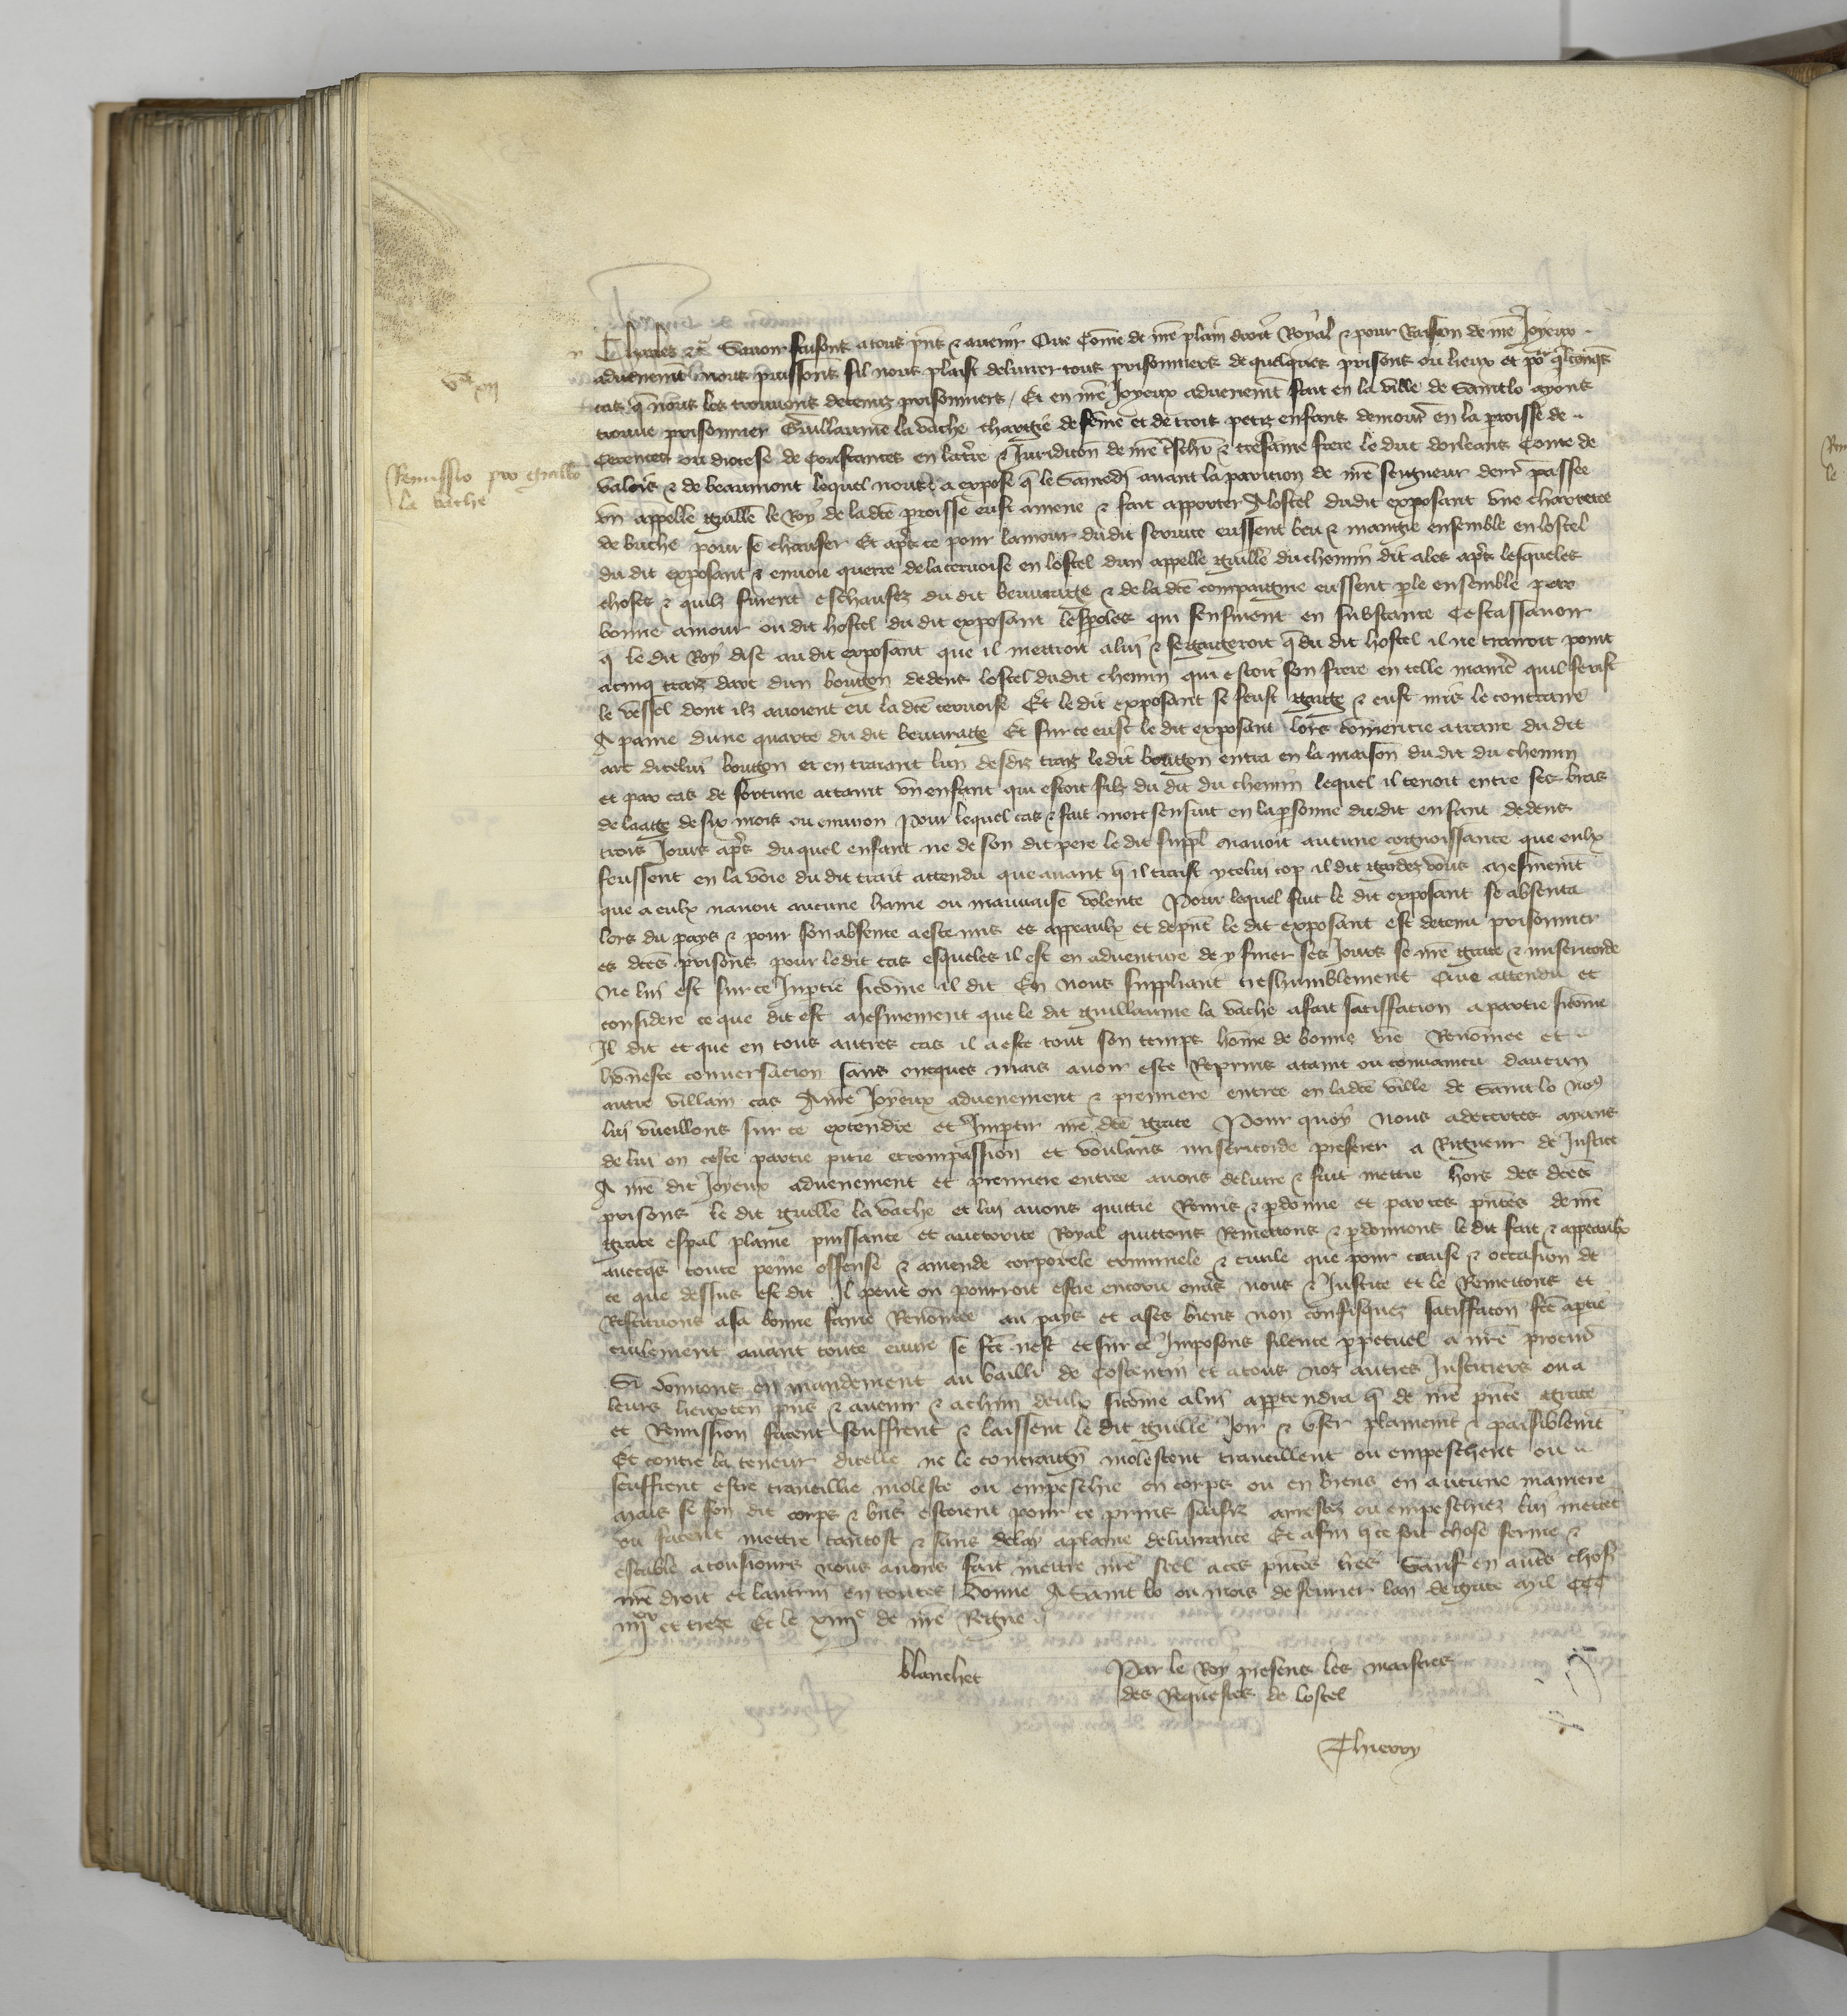 Charles etc. Savoir faisons a tous pns & avenir Que Come de nre plain droit Royal & pour Raison de nre Joyeux
advenement nous puissons sil nous plaist delivrer tous prisonniers de quelques prisons ou lieux et por qlconqs
cas q nous les trouvons detenuz prisonniers / Et en nre Joyeux advenemt fait en la ville de Saintlo ayons
trouve prisonnier Guillaume la vache chargie de feme et de trois petiz enfans demour en la proisse de
Cerences ou diocese de Constances en la tre & Juridicon de nre tschr & tresame frere le duc dorleans Conte de
Remissio pro Guillo
la vache
valois & de beaumont lequel nous a expose q le Samedi avant la parition de nre seigneur dernr passee
un appelle Guille le Roy de ladte proisse eust amene & fait apporter A lostel dudit exposant une charretee
de buche pour se chaufer Et aps ce pour lamour dudit service eussent beu & mangie ensemble en lostel
du dit exposant & envoie querre de la cervoise en lostel dun appelle Guille du chemin dit ales aps lesqueles
choses & quilz furent eschaufez du dit beuvrage & de la dte compaignie eussent ple ensemble par
bonne amour ou dit hostel du dit exposant les proles qui sensuient en substance Cestassavoir
q le dit Roy dist au dit exposant que il mettroit a lui & se gaigeroit q du dit hostel il ne trairoit point
a cinq traiz darc dun bougon dedens lostel dudit chemin qui estoit son frere en telle manre quil ferist
le vessel dont ilz avoient eu la dte cervoise Et le dit exposant se feust gaige & eust mis le contraire
A paine dune quarte du dit beuvrage Et sur ce eust le dit exposant lors comencie a traire du dit
arc dicelui bougon et en traiant lun desdiz traiz le dit bougon entra en la maison du dit du chemin
et par cas de fortune attaint un enfant qui estoit filz du dit du chemin lequel il tenoit entre ses bras
de laage de six mois ou environ Pour lequel cas & fait mort sensuit en la psonne dudit enfant dedens
trois Jours aps du quel enfant ne de son dit pere le dit suppl navoit aucune congnoissance que eulx
feussent en la voie du dit trait attendu que avant q il traist ycelui cop il dit gardez vous mesmemt
que a eulx navoit aucune haine ou mauvaise volente Pour lequel fait le dit exposant se absenta
lors du pays & pour son absence a este mis es appeaulx et depnt le dit exposant est detenu prisonnier
es dtes prisons pour le dit cas esqueles il est en adventure de y finer ses Jours se nre grace & misericorde
ne lui est sur ce Inprtie sicome il dit En nous suppliant treshumblement Que attendu et
considere ce que dit est mesmement que le dit Guillaume la vache a fait satisfacion a partie sicome
Il dit et que en tous autres cas il a este tout son temps home de bonne vie Renomee et
honeste conversacion sans oncques mais avoir este Reprins ataint ou convaincu daucun
autre villain cas A nre Joyeux advenement & premiere entree en ladte ville de Saintlo nos
lui vueillons sur ce extendre et Imprtir nre dte grace Pour quoy nous adecertes ayans
de lui en ceste partie pitie et compassion et voulans misericorde preferer a Rigueur de Justice
A nre dit Joyeux advenement et premiere entree avons delivre & fait mettre hors des dtes
prisons le dit Guille la vache et lui avons quittie Remis & pdonne et par ces pntes de nre
grace espal plaine puissance et auctorite Royal quittons Remettons & pdonnons le dit fait & appeaulx
avecqs toute peine offense & amende corporele criminele & civile que pour cause & occasion de
ce que dessus est dit Il peut ou pourroit estre encoru envs nous & Justice et le Remettons et
Restituons a sa bonne fame Renomee au pays et a ses biens non confisquez satisfacon fte a ptie
civilement avant toute euvre se fte nest et sur ce Imposons silence ppetuel a nre procur
Si donnons en mandement au bailli de Costentin et a tous noz autres Justiciers ou a
leurs lieuxten pns & avenir & a chun deulx sicome a lui apptendra q de nre pnte grace
et Remission facent seuffrent & laissent le dit Guille Joir & user plainemt & paisiblemt
Et contre la teneur dicelle ne le contraign molestent traveillent ou empeschent ou
seuffrent estre traveillie moleste ou empeschie en corps ou en biens en aucune maniere
Mais se son dit corps & bns estoient pour ce prins saisiz arrestez ou empeschiez lui mettet
ou facent mettre tantost & sans delay a plaine delivrance Et afin q ce soit chose ferme &
estable a tousiours nous avons fait mettre nre scel a ces pntes lres Sauf en autres chos
nre droit et lautrui en toutes Donne A Saint lo ou mois de fevrier lan de grace mil CCC
iiiixx et treze Et le xiiiie de nre Regne
blanchet
Par le Roy presens les maistres
des Requestes de lostel
Thierry